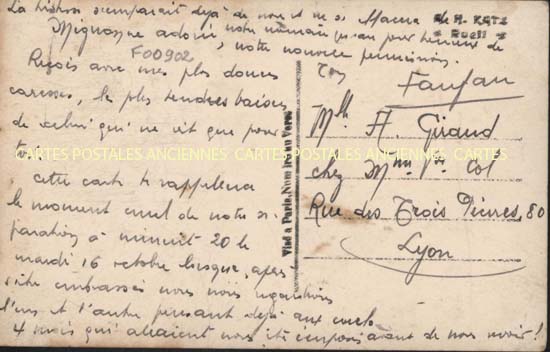 La tristesse s'emparait déjà de nous et ne si
Mignonne adorée notre maman pour l'heure de
notre nouvelle permission.
de A. KATZ
Rueil
F00902
Reçois avec mes plus douces
caresses, les plus tendres baisers
de celui qui ne vit que pour
toi
Ton
Fanfan
Cette carte te rappellera
le moment cruel de notre sé
paration à minuit 20 le
mardi 16 octobre lorsque, après
s'être embrassés nous nous regardions
l'un et l'autre pensant déjà aux
4 mois qui allaient nous être imposés avant de nous revoir !
Visé à Paris, Numéro au Verso
Mlle A. Giraud
chez Mme Vve Col
Rue des Trois Pierres, 80
Lyon
CARTES POSTALES ANCIENNES CARTES POSTALES ANCIENNES